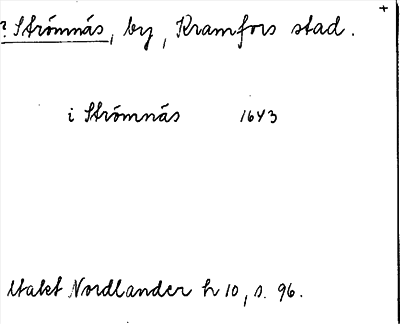 ? Strömnäs, by, Kramfors stad.
i Strömnäs 1643
Nordlander h 10, s. 96.